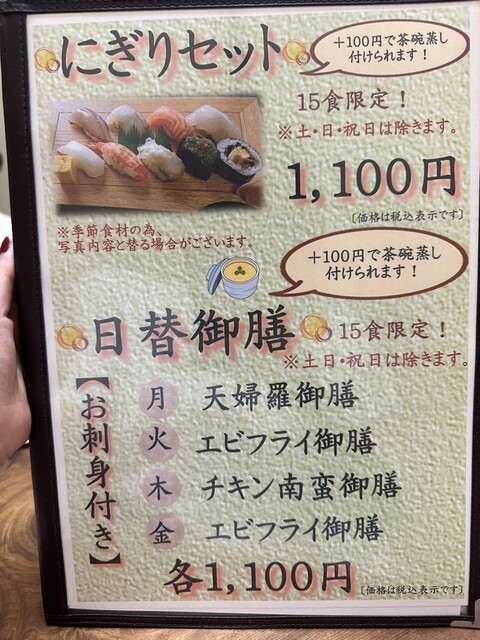 にぎりセット
+100円で茶碗蒸し
付けられます!
15食限定!
※土・日・祝日は除きます。
1,100円
〔価格は税込表示です〕
※季節食材の為、
写真内容と替る場合がございます。
+100円で茶碗蒸し
付けられます!
日替御膳
15食限定!
※土日・祝日は除きます。
【お刺身付き】
月 天婦羅御膳
火 エビフライ御膳
木 チキン南蛮御膳
金 エビフライ御膳
各1,100円
〔価格は税込表示です〕